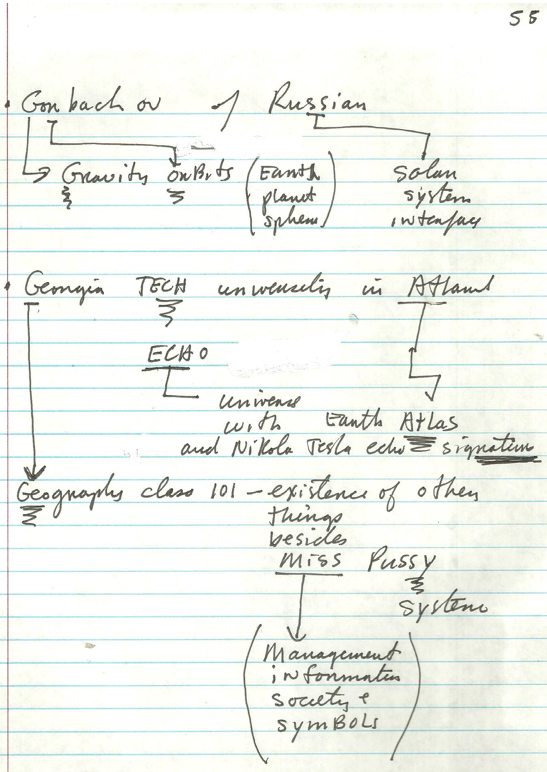 55
Gorbachov of Russian
Gravity orBits (Earth Solar
planet system
sphere) interface
Georgia TECH university in Atlant
ECHO
universe
with Earth Atlas
and Nikola Tesla echo signature
Geography class 101 - existence of other
things
besides
MISS Pussy
system
(Management
information
society &
symBoLs)